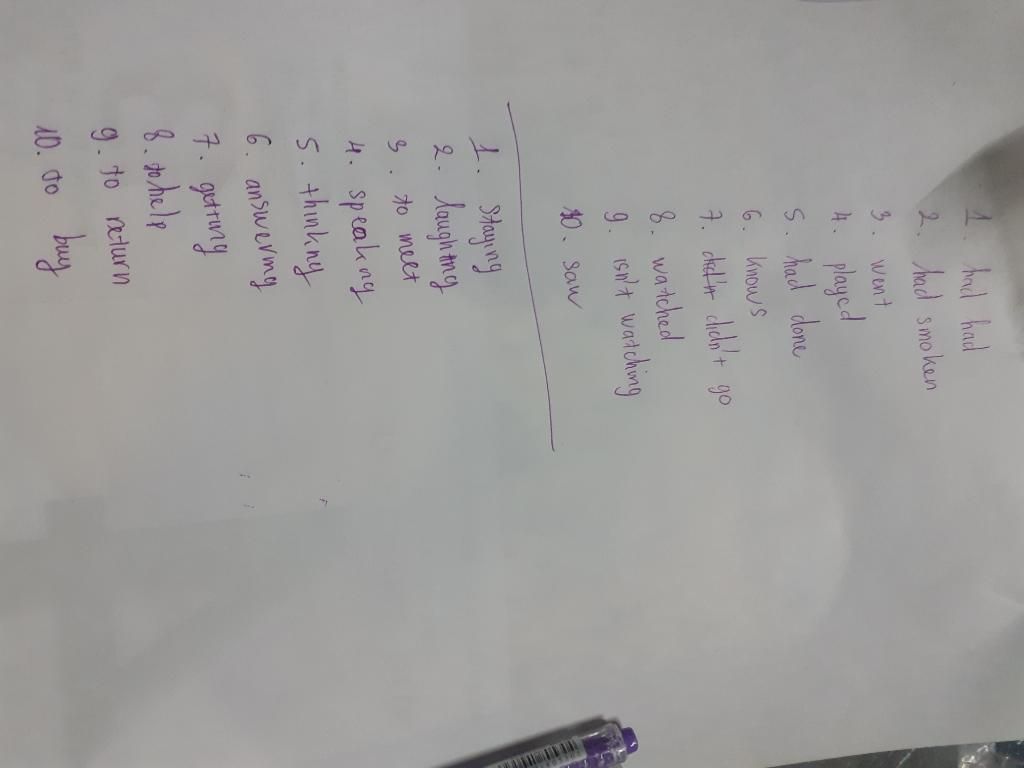 1. had had
2. had smoken
3. went
4. played
5. had done
6. knows
7. did'n didn't go
8. watched
9. isn't watching
10. saw
1. staying
2. laughting
3. to meet
4. speaking
5. thinking
6. answering
7. getting
8. to help
9. to return
10. to buy